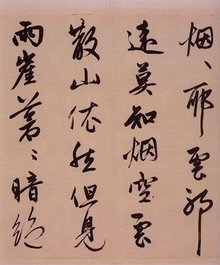 烟山耶雲耶
遠莫知烟空雲
散山依然但見
兩崖蒼〻暗絕